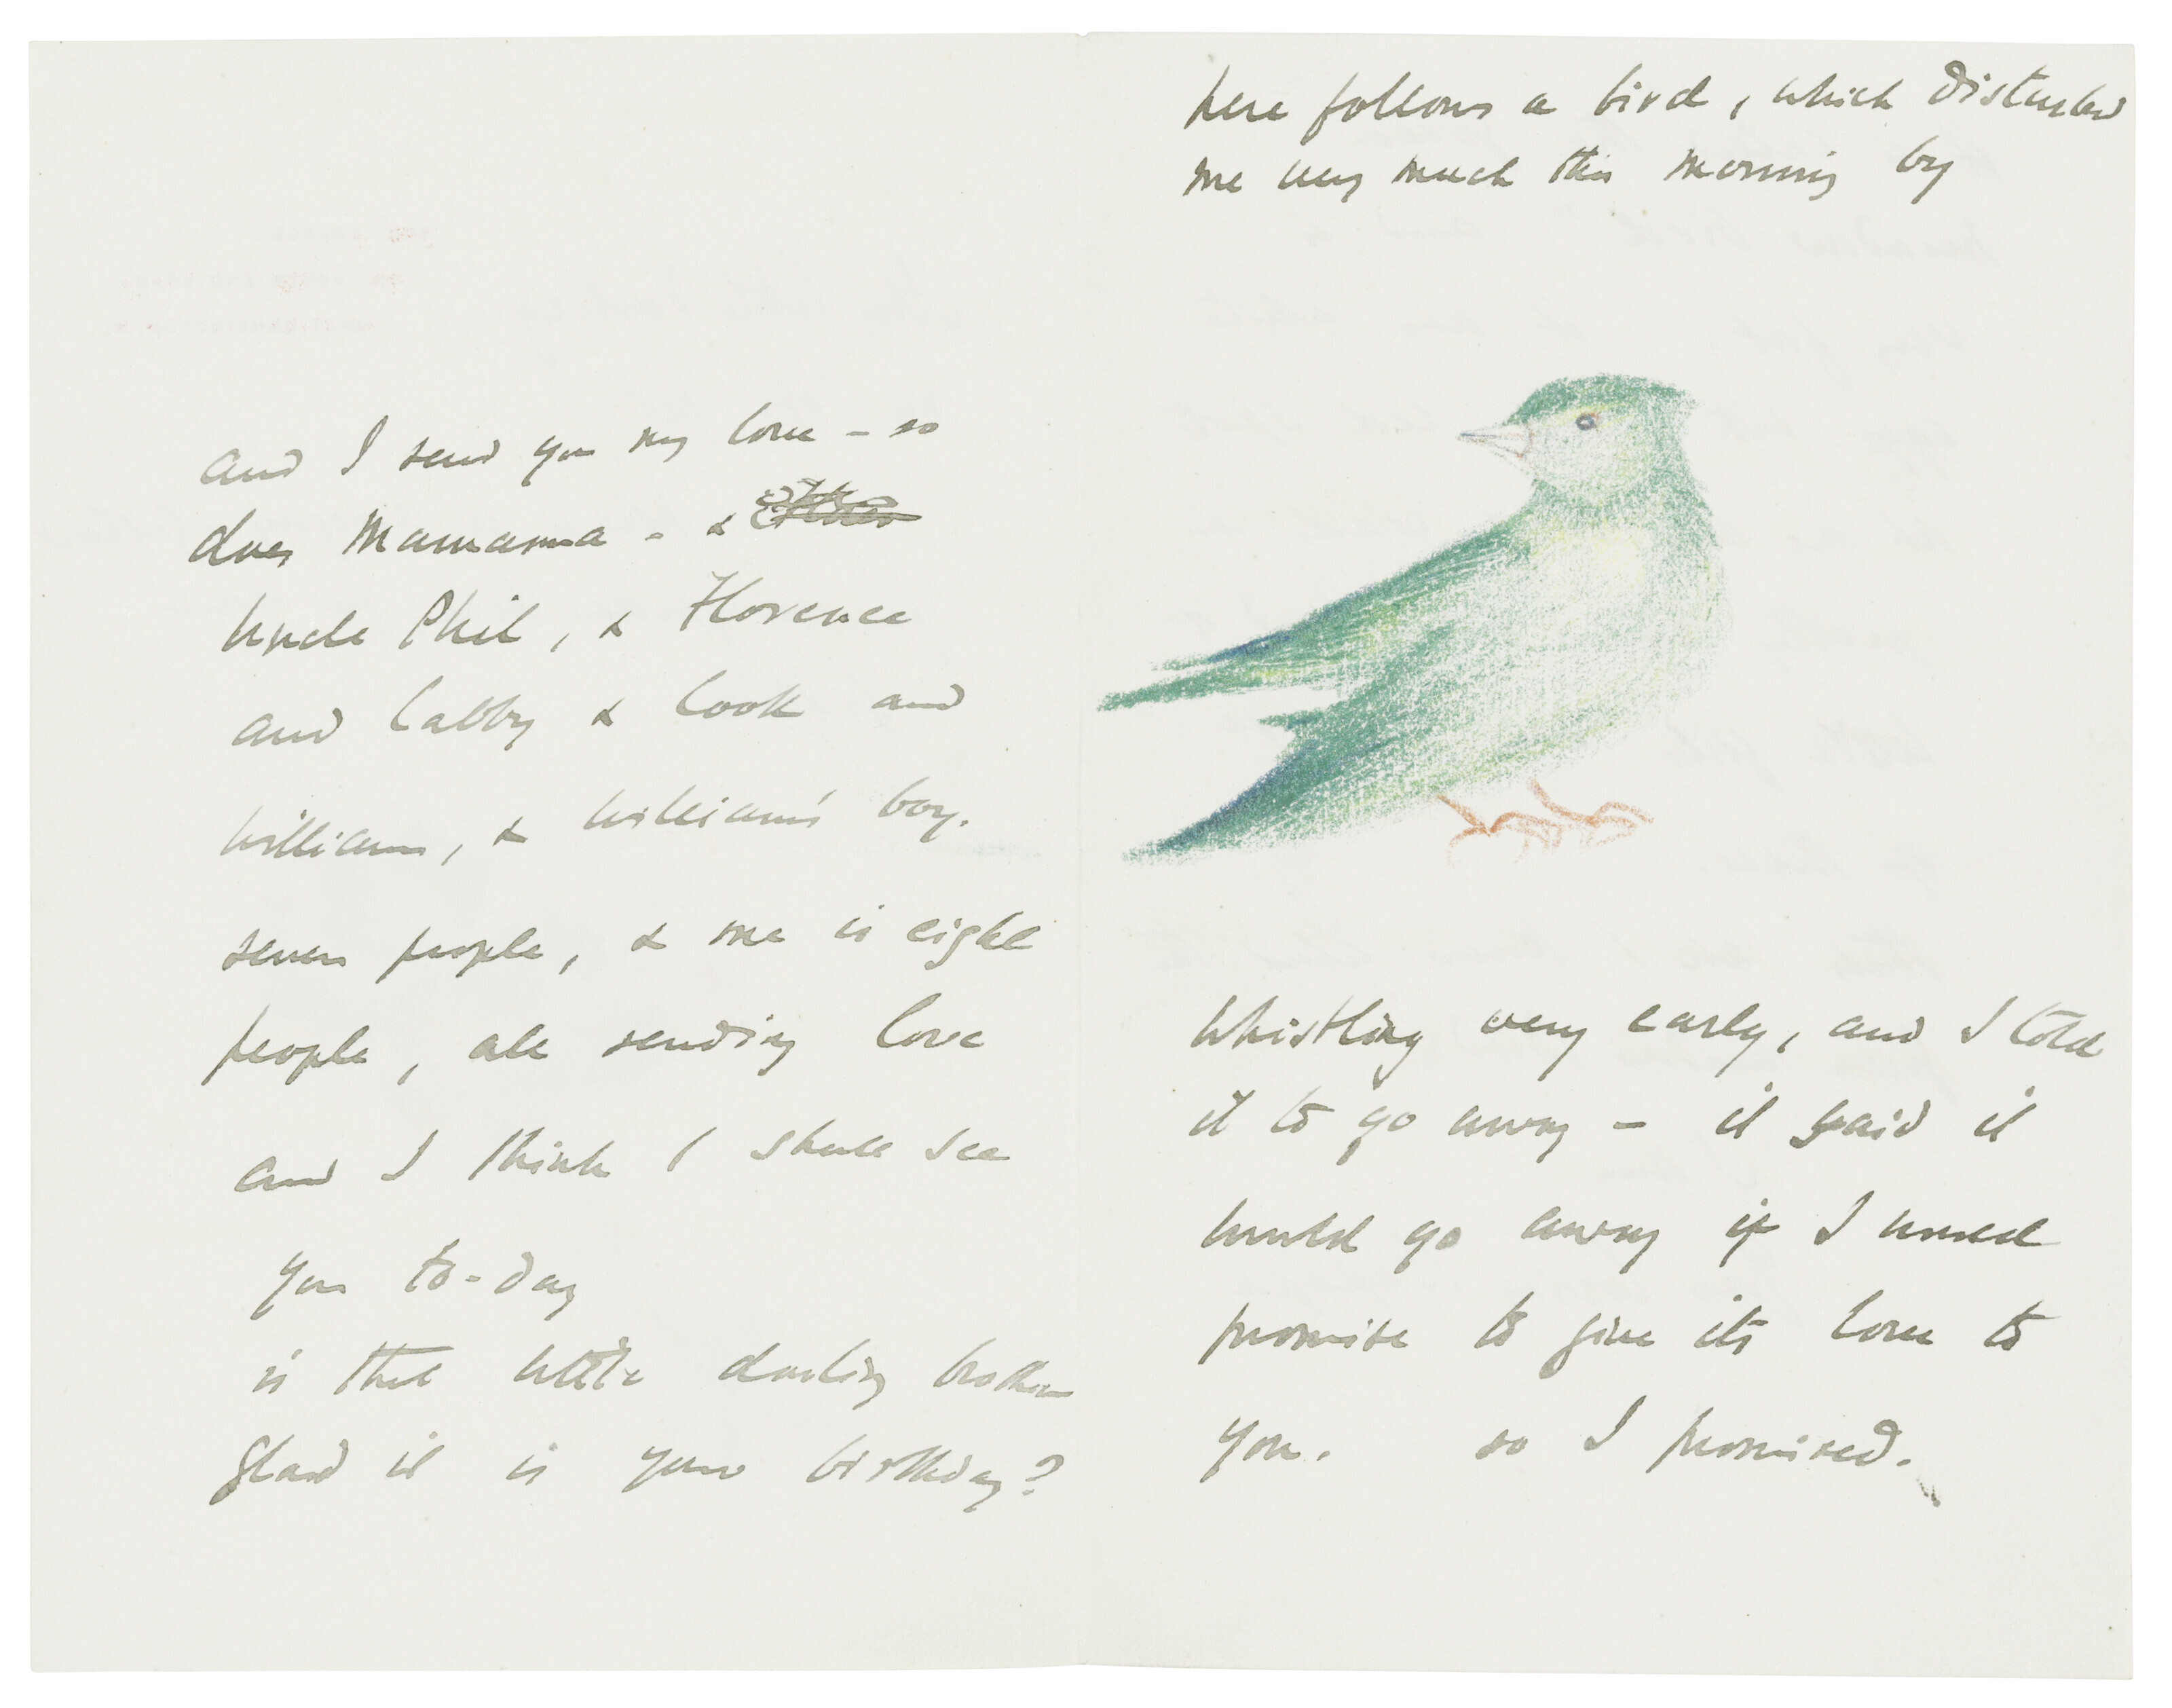 and I send you my love - so
does Mamama - &
Uncle Phil, & Florence
and Cabby & Cook and
William, & William's boy.
seven people, & me is eight
people, all sending love
and I think I shall see
you to-day
is that little darling brother
glad it is your birthday?
here follows a bird, which disturbed
me very much this morning by
whistling very early, and I told
it to go away - it said it
would go away if I would
promise to give its love to
you. so I promised.